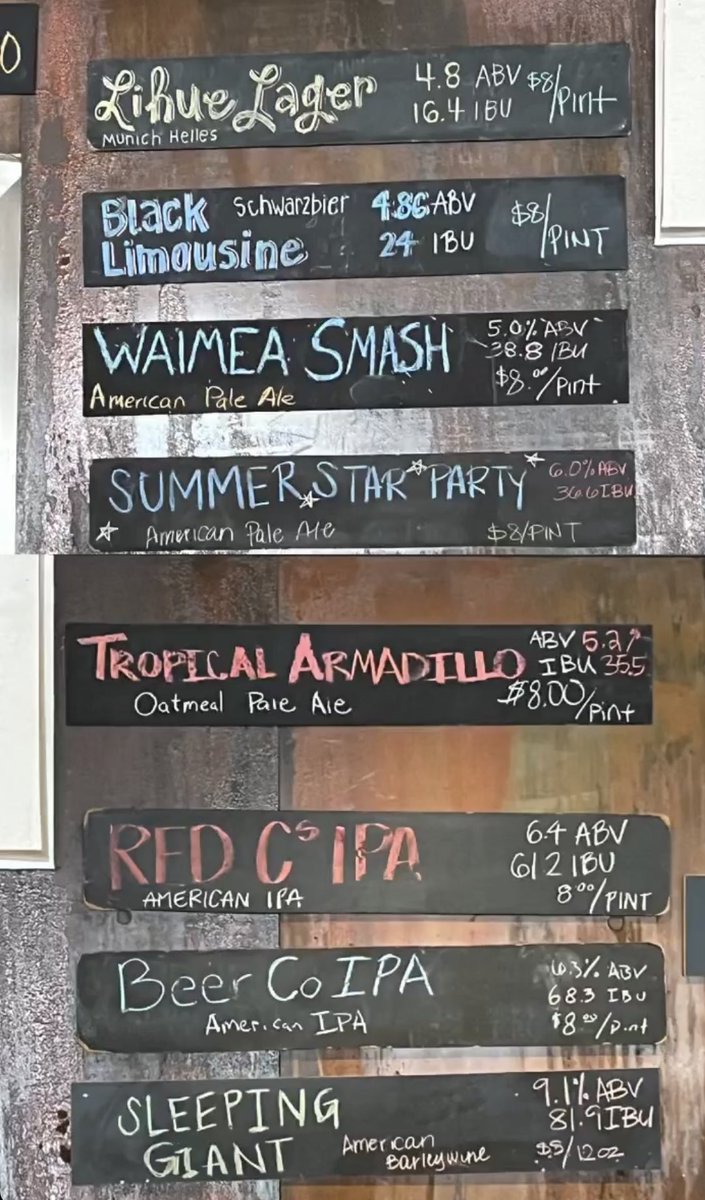 0
Lihue Lager 4.8 ABV $8/Pint
16.4 IBU
Munich Helles
Black Schwarzbier 4.86 ABV $8/PINT
Limousine 24 IBU
WAIMEA SMASH 5.0% ABV
38.8 IBU
American Pale Ale $8.00/Pint
SUMMER STAR PARTY 6.0% ABV
36.6 IBU
American Pale Ale $8/PINT
TROPICAL ARMADILLO ABV 5.2%
IBU 35.5
Oatmeal Pale Ale $8.00/Pint
RED Cs IPA 6.4 ABV
61.2 IBU
AMERICAN IPA 8.00/PINT
Beer Co IPA 6.3% ABV
68.3 IBU
American IPA $8.00/Pint
SLEEPING 9.1% ABV
81.9 IBU
GIANT American Barleywine $8/12oz